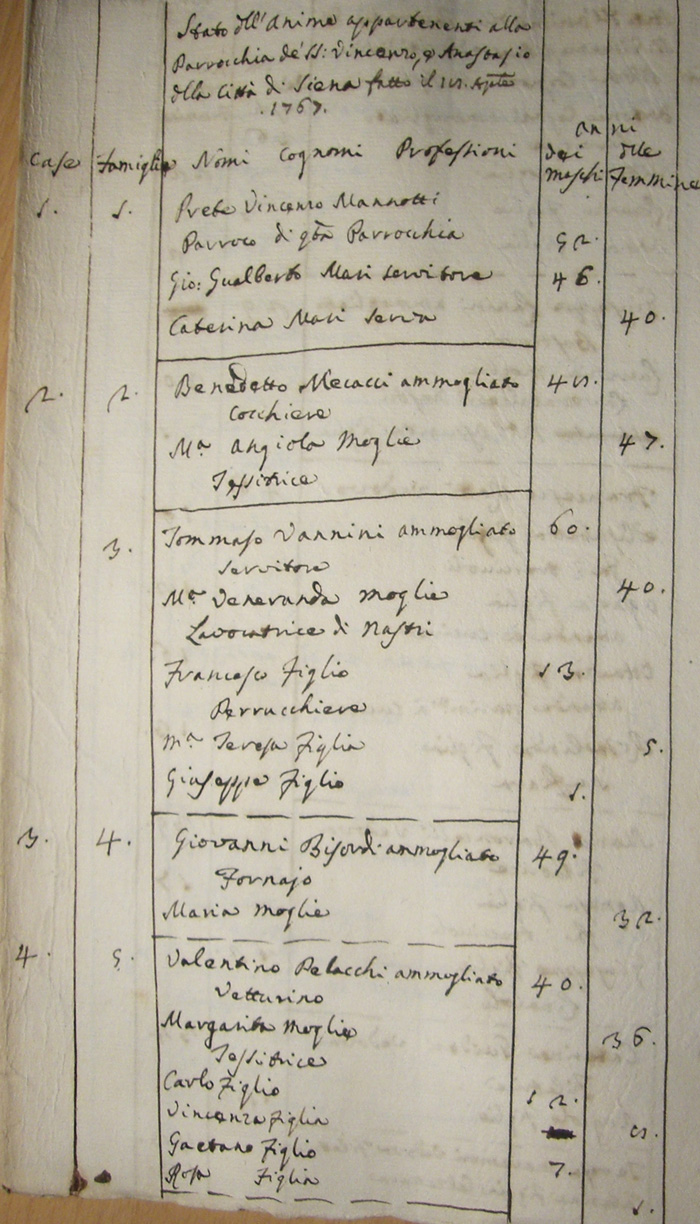 Stato dell'Anime appartenenti alla
Parrocchia de' SS: Vincenzo, e Anastasio
della Città di Siena fatto il
.1767.
anni
Case Famiglie Nomi Cognomi Professioni dei delle
maschi Femmine
1. 1. Prete Vincenzo Mannotti
Parroco di qta Parrocchia 52.
Gio: Gualberto Mari servitore 46.
Caterina Mari serva 40.
2. 2. Benedetto Mecacci ammogliato
Cocchiere
Ma. Angiola Moglie 47.
Tessitrice
3. Tommaso Vannini ammogliato 60.
servitore
Ma. Veneranda moglie 40.
Lavoratrice di Nastri
Francesco Figlio 13.
Perrucchiere
Ma. Teresa Figlia 5.
Giuseppe Figlio 1.
3. 4. Giovanni Bisordi ammogliato 49.
Fornajo
Maria moglie 32.
4. 5. Valentino Pelacchi ammogliato 40.
Vetturino
Margarita moglie 36.
Tessitrice
Carlo Figlio 12.
Vincenza Figlia
Gaetano Figlio 7.
Rosa Figlia 1.